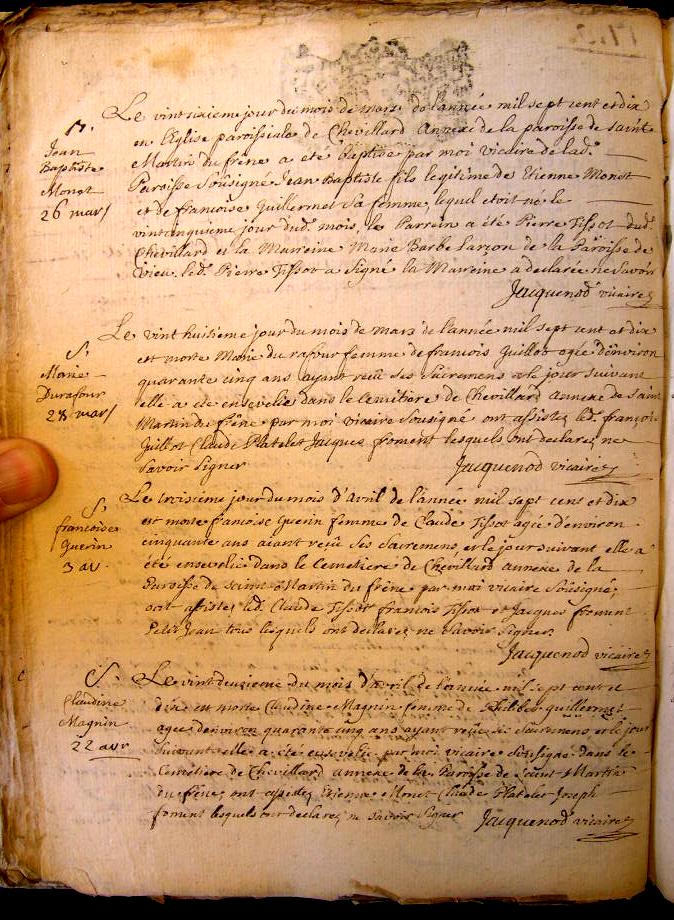 Le vint sixieme jour du mois de mars de l'année mil sept cent et dix
en l'Eglise paroissiale de Chevillard Annexe de la paroisse de Saint
Martin du frêne a eté Baptisé par moi vicaire de lad.
Paroisse Sousigné Jean Baptiste fils legitime de Etienne Monet
et de francoise Guillermet Sa femme, lequel etoit né le
vintcinquieme jour dud. mois, le Parrein a été Pierre Tissot dud.
Chevillard et la Marreine Marie Barbe Larçon de la Paroisse de
Vieu. led. Pierre Tissot a Signé la Marreine a declaré ne Savoir
Jacquenod vicaire
Jean
Baptiste
Monet
26 mars
Le vint huitieme jour du mois de mars de l'année mil sept cent et dix
est morte Marie du rafour femme de francois Guillot agée d'environ
quarante cinq ans ayant reçû ses Sacremens et le jour suivant
elle a eté ensevelie dans le Cemetiere de Chevillard annexe de Saint
Martin du frêne par moi vicaire Sousigné ont assistés led. françois
Guillot Claude Platelet Jacques froment lesquels ont declarés ne
Savoir Signer
Jacquenod vicaire
S.
Marie
Durafour
28 mars
Le troisieme jour du mois d'Avril de l'année mil sept cent et dix
est morte francoise Guerin femme de Claude Tissot agée d'environ
cinquante ans aiant reçû Ses Sacremens, et le jour suivant elle a
été ensevelie dans le Cemetiere de Chevillard annexe de la
Paroisse de saint Martin du frêne par moi vicaire Sousigné,
ont assistés led. Claude Tissot francois Tissot et Jacques froment
Petit Jean tous lesquels ont declarés ne Savoir Signer.
Jacquenod vicaire
S.
francoise
Guerin
3 av.
Le vint deuzieme du mois d'avril de l'année mil sept cent et
dix est morte Claudine Magnin femme de Philibert guillermet
agée d'environ quarante cinq ans ayant reçû ses Sacremens et le jour
suivant elle a été ensevelie par moi vicaire Sousigné dans le
Cemetiere de Chevillard annexe de la Paroisse de Saint Martin
du frêne, ont assistés Etienne Monet Claude Platelet Joseph
froment lesquels ont declarés ne savoir Signer
Jacquenod vicaire
S.
Claudine
Magnin
22 avr